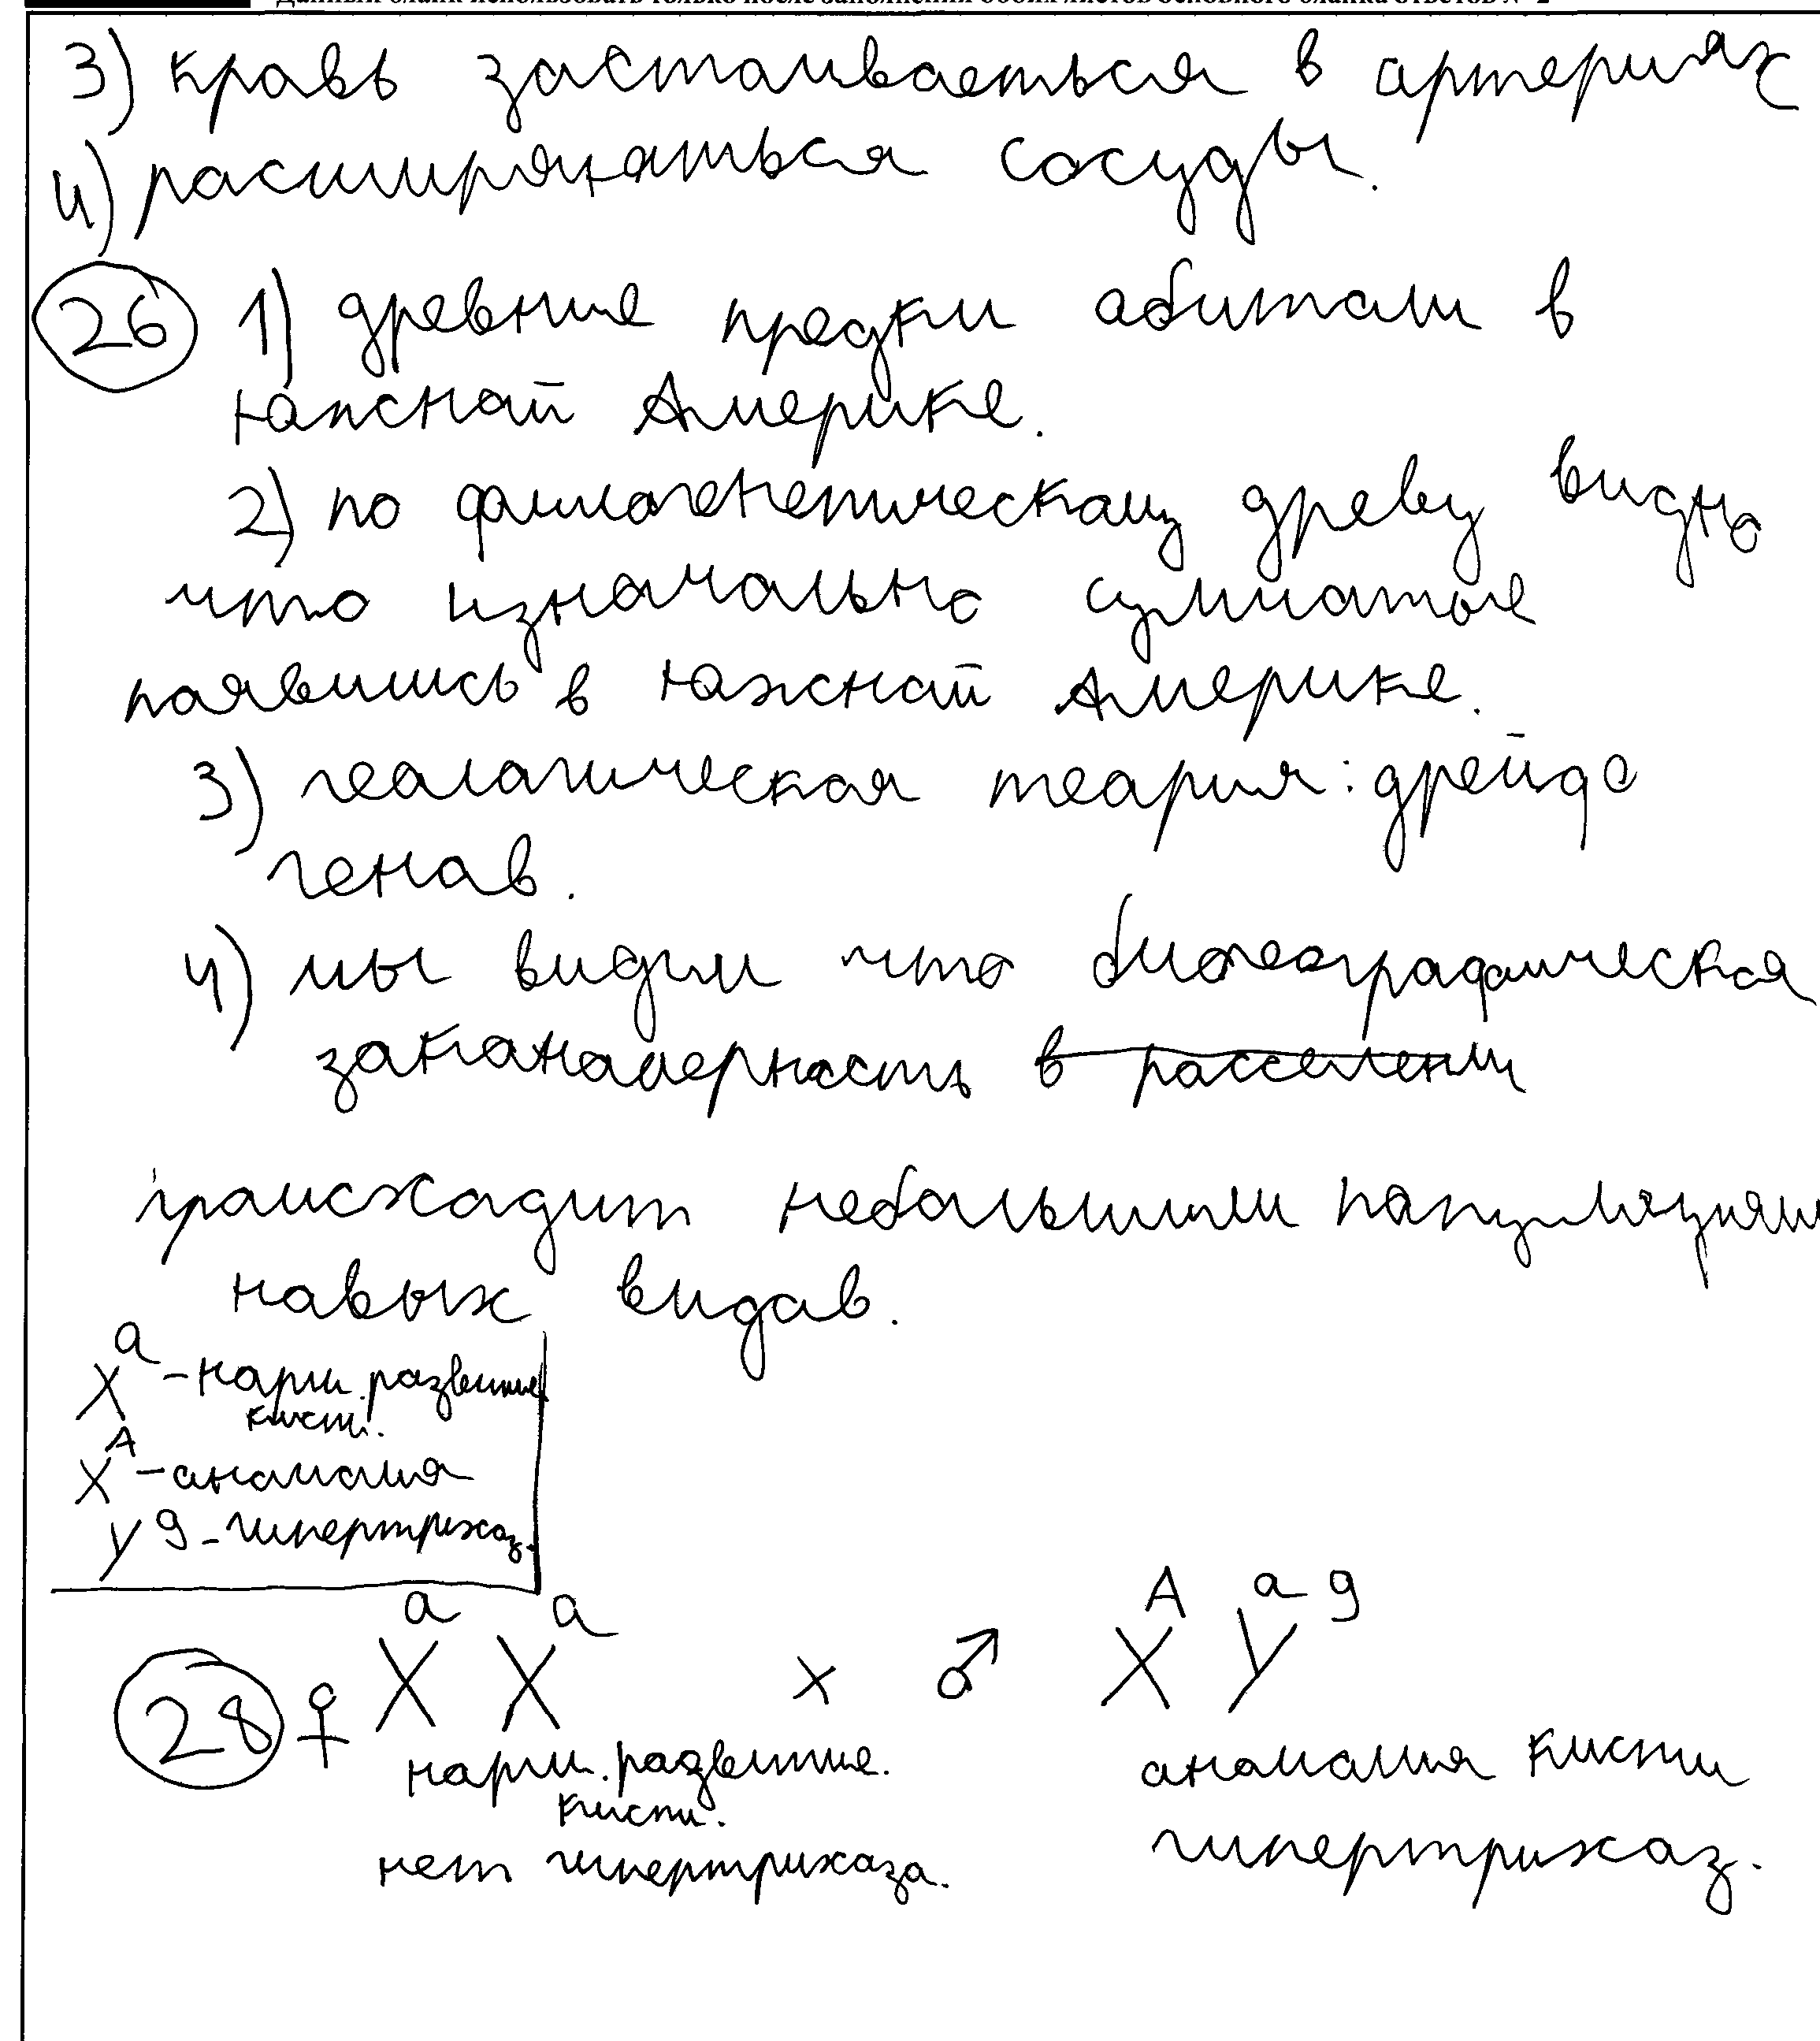 Данный бланк использовать только после заполнения обоих листов основного бланка ответов № 2
3) кровь застаиваеться в артериях
4) расширяються сосуды.
26 1) древние предки обитали в
южной Америке.
2) по филогенетическому древу видно
что изначально сумчатые
появились в южной Америке.
3) геологическая теория: дрейф
генов.
4) мы видим что биогеографическая
закономерность в расселени
происходит небольшими популяциями
новых видов.
X^a - норм. развитие
кисти.
X^A - аномалия
y^g - гипертрихоз.
28 ♀ X^a X^a x ♂ X^A Y^a g
норм. развитие. аномалия кисти
кисти.
нет гипертрихоза. гипертрихоз.